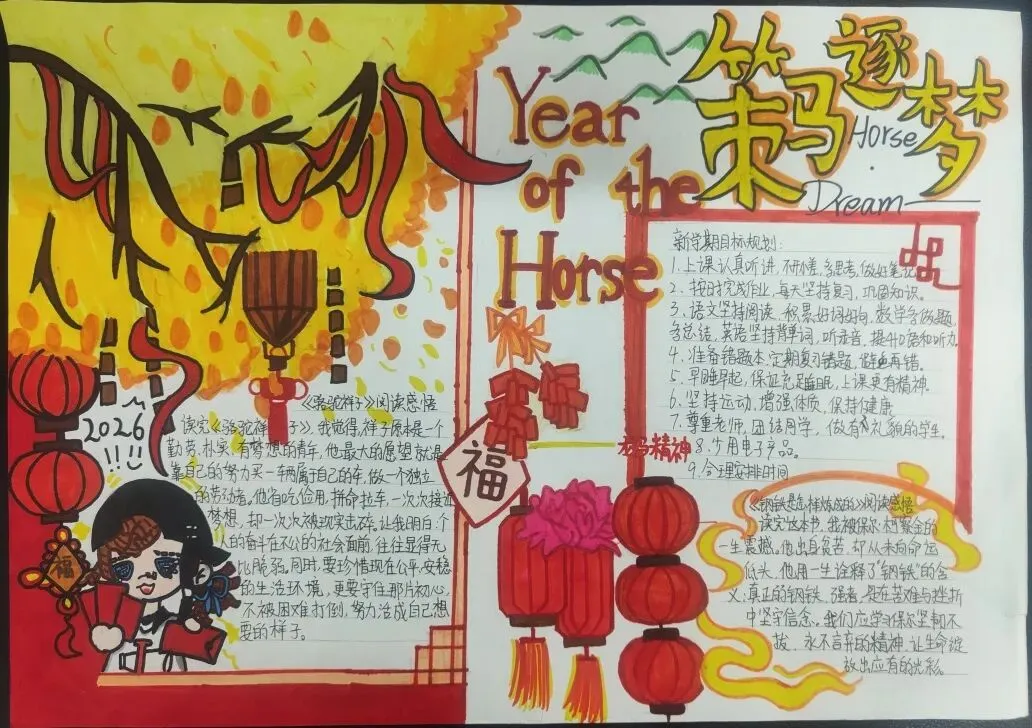 策马逐梦
Horse
Dream
Year
of the
Horse
新学期目标规划:
1. 上课认真听讲,不开小差,多思考,做好笔记
2. 按时完成作业,每天坚持复习,巩固知识。
3. 语文坚持阅读,积累好词好句,数学多做题,
多总结,英语坚持背单词,听录音,提升口语和听力。
4. 准备错题本,定期复习错题,避免再错。
5. 早睡早起,保证充足睡眠,上课更有精神。
6. 坚持运动,增强体质,保持健康
7. 尊重老师,团结同学,做有礼貌的学生。
8. 少用电子产品。
9. 合理安排时间
龙马精神
福
2026
!!!
福
《骆驼祥子》阅读感悟
读完《骆驼祥子》,我觉得,祥子原本是一个
勤劳、朴实、有梦想的青年,他最大的愿望就是
靠自己的努力买一辆属于自己的车,做一个独立
的劳动者,他省吃俭用,拼命拉车,一次次接近
梦想,却一次次被现实击碎,让我明白:个
人的奋斗在不公的社会面前,往往显得无
比脆弱。同时,要珍惜现在公平、安稳
的生活环境,更要守住那片初心,
不被困难打倒,努力活成自己想
要的样子。
《钢铁是怎样炼成的》阅读感悟
读完这本书,我被保尔·柯察金的
一生震撼。他出身贫苦,却从未向命运
低头,他用一生诠释了"钢铁"的含
义:真正的钢铁,强者,是在苦难与挫折
中坚守信念。我们应学习保尔坚韧不
拔、永不言弃的精神,让生命绽
放出应有的光彩。